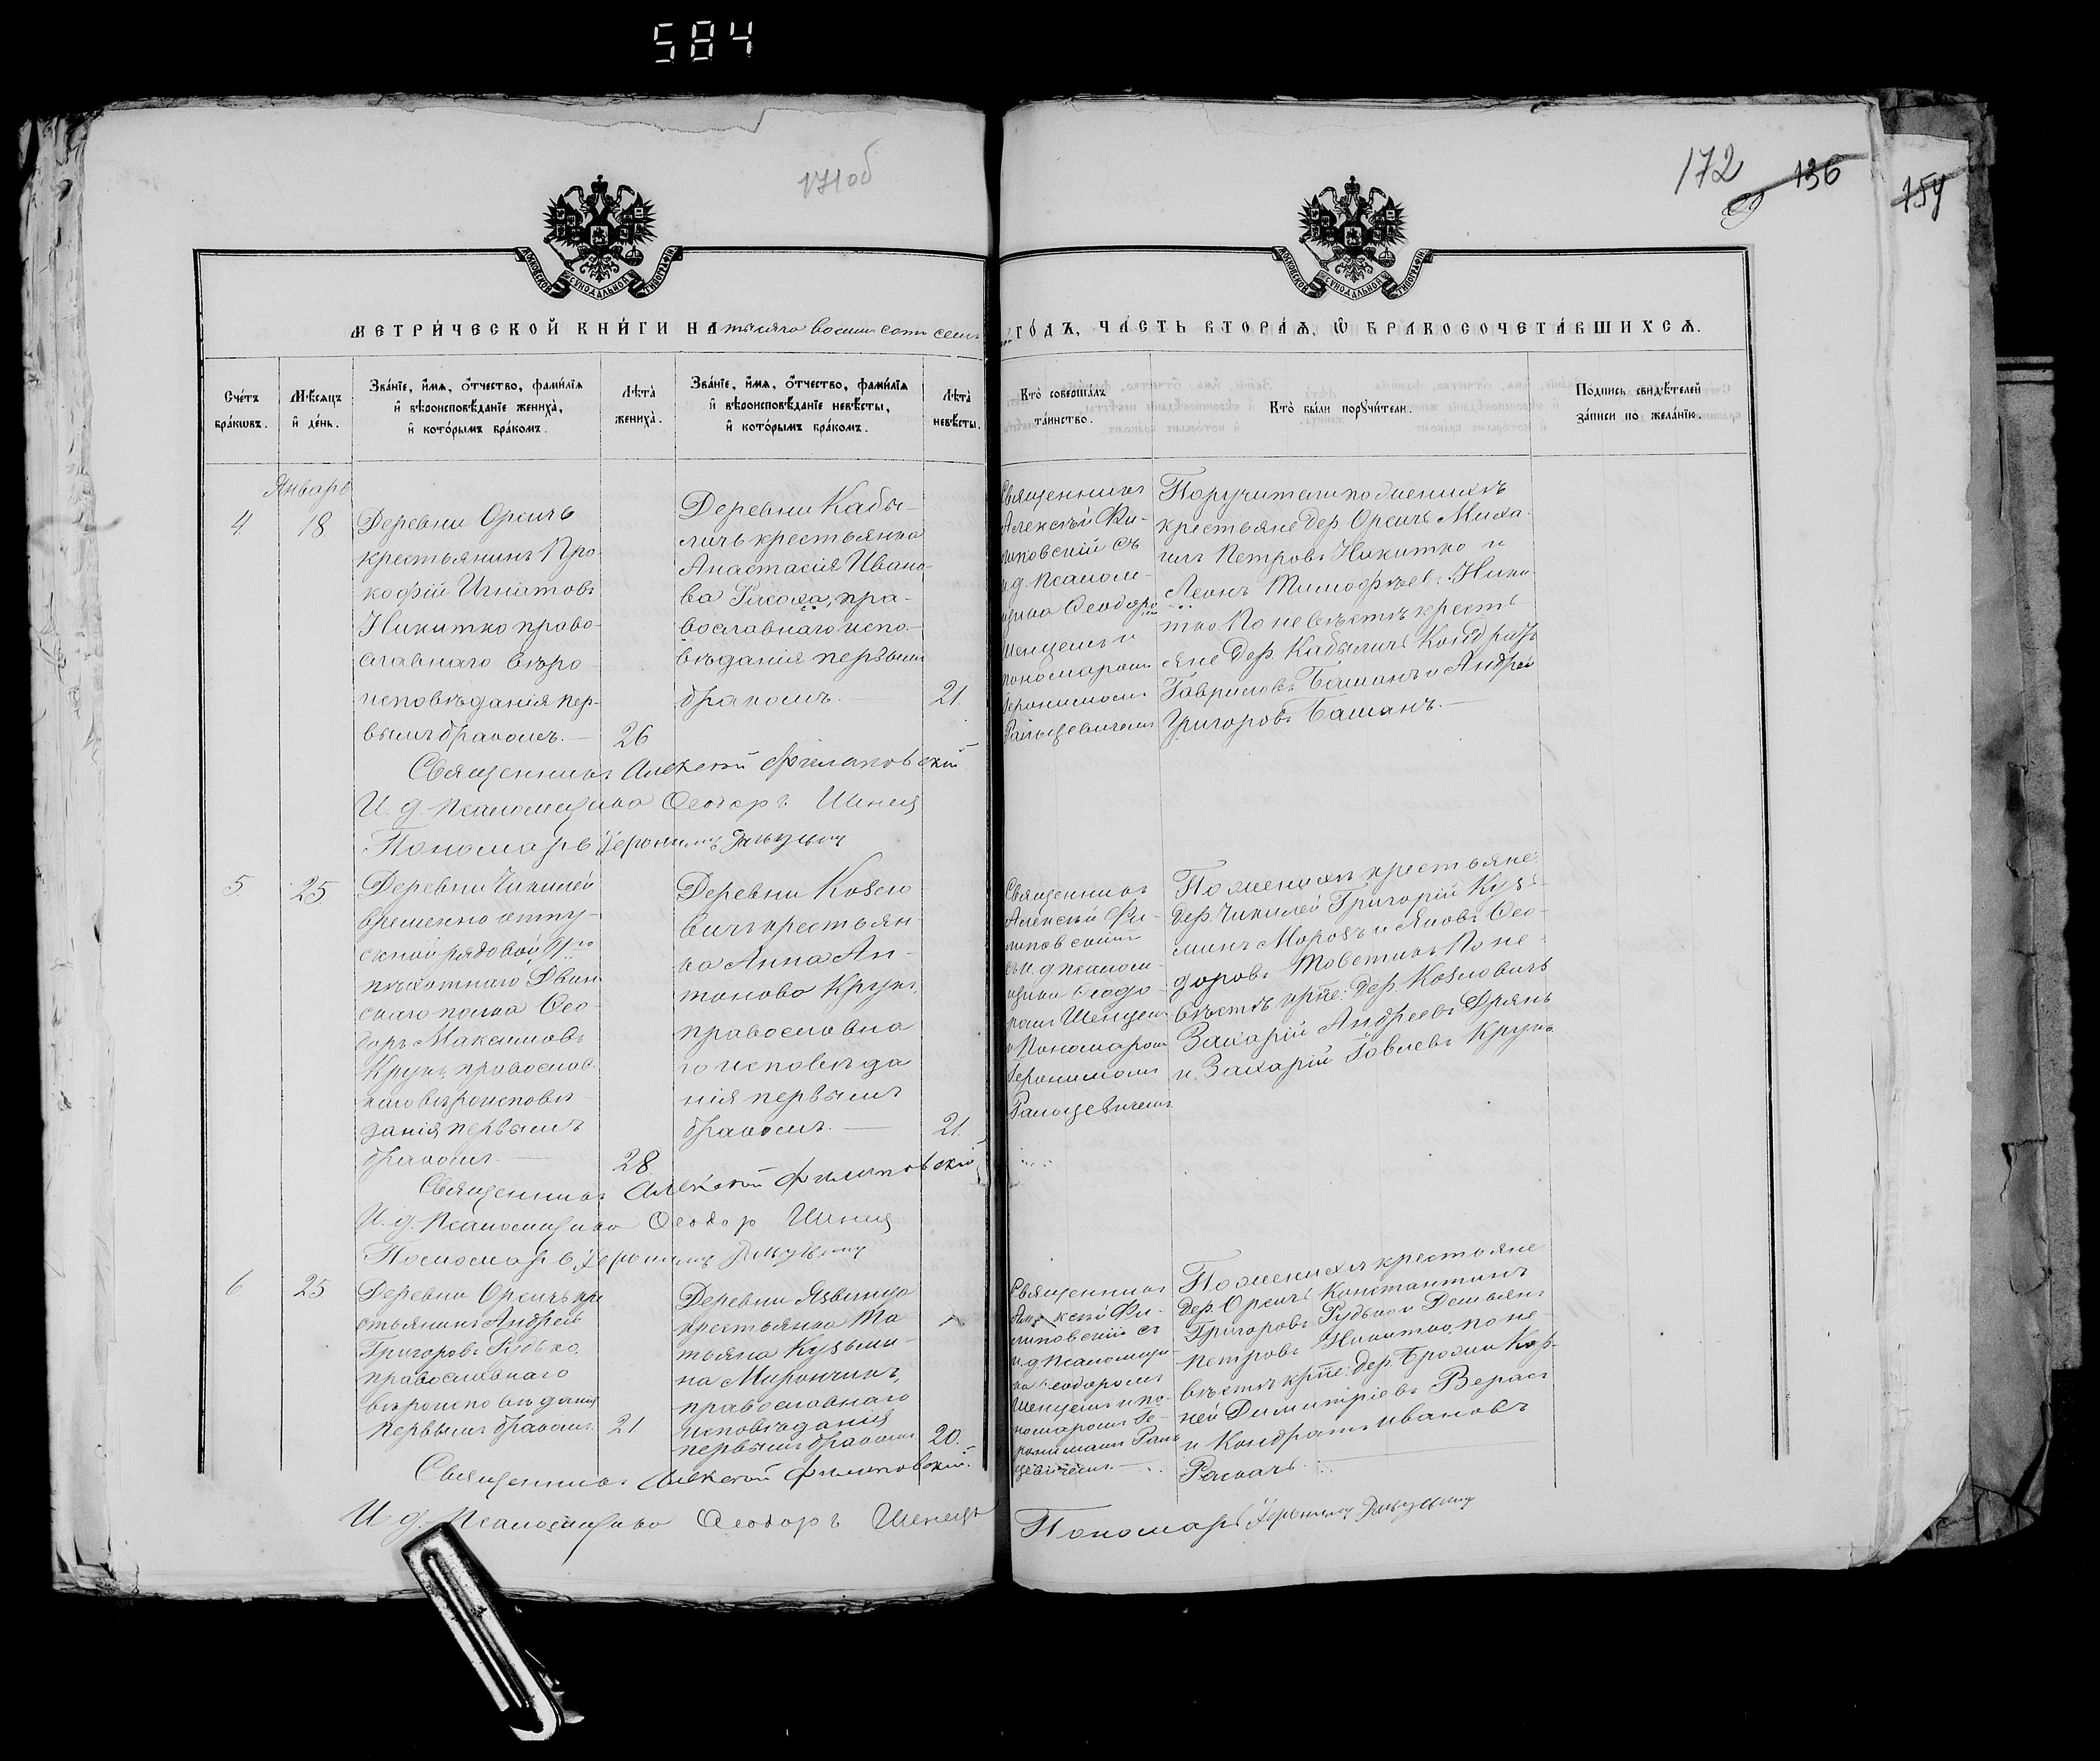 584
171об
172
136
154
МОСКОВСКОЙ СѴНОДАЛЬНОЙ ТИПОГРАФІИ
МОСКОВСКОЙ СѴНОДАЛЬНОЙ ТИПОГРАФІИ
МЕТРИ́ЧЕСКОЙ КНИ́ГИ НА тысяча восемь сотъ семь
ГО́ДЪ, ЧА́СТЬ ВТОРА́Я, Ѡ БРАКОСОЧЕТА́ВШИХСЯ.
Сче́тъ
бра́кѡвъ.
Мѣ́сяцъ
и҆ де́нь.
Зва́нїе, и҆́мя, ѻ҆́тчество, фами́лїя
и҆ вѣроисповѣ́данїе жениха̀,
и҆ кото́рымъ бра́комъ.
Лѣта̀
жениха̀.
Зва́нїе, и҆́мя, ѻ҆́тчество, фами́лїя
и҆ вѣроисповѣ́данїе невѣ́сты,
и҆ кото́рымъ бра́комъ.
Лѣта̀
невѣ́сты.
Кто̀ соверша́лъ
та́инство.
Кто̀ бы́ли порꙋчи́тели.
По́дпись свидѣ́телей
за́писи по жела́нїю.
Январь
4.
18.
Деревни Оресичь
крестьянинъ Про-
кофій Игнатовъ
Никитко право-
славнаго вѣро-
исповѣданія пер-
вымъ бракомъ. —
26
Деревни Кабы-
личь крестьянка
Анастасія Ивано-
ва Гасоха, пра-
вославнаго испо-
вѣданія первымъ
бракомъ. —
21.
Священникъ
Алексѣй Фи-
липовскій съ
и. д. псалом-
щика Ѳеодоро
Шенцемъ и
пономаремъ
Іеронимомъ
Ральцевичемъ
Поручители по женихѣ
крестьяне дер. Оресичь Миха-
илъ Петровъ Никитко и
Леонъ Тимофѣевъ Ники-
тко. По невѣстѣ кресть-
яне дер. Кабыличь Кондратъ
Гавриловъ Башанъ и Андрей
Григоровъ Башанъ. —
Священникъ Алексѣй Филиповскій
И. д. псаломщика Ѳеодоръ Шенец
Пономарь Іеронимъ Ральцевич
5
25
Деревни Чижилей
временно отпу-
скной рядовой
пѣхотнаго Двин
скаго полка Ѳео
доръ Максимовъ
Крукъ, православ
наго вѣроисповѣ-
данія первымъ
бракомъ. —
28
Деревни Козло
вичъ крестьян-
ка Анна Ан-
тонова Крукъ,
православна
го исповѣда
нія первымъ
бракомъ. —
21.
Священникъ
Алексѣй Фи-
липовскій
съ и. д. псалом-
щика Ѳеодо-
ромъ Шенцемъ
и Пономаремъ
Іеронимомъ
Ральцевичемъ
По женихѣ крестьяне
дер. Чижилей Григорій Кузь-
минъ Морозъ и Яковъ Ѳео-
доровъ Товстикъ. По не-
вѣстѣ крне: дер. Козловичь
Захарій Андреевъ
и Захарій Крукъ
Священникъ Алексѣй Филиповскій
И. д. псаломщика Ѳеодор Шенец
Пономарь Іеронимъ Ральцевич
6
25
Деревни Оресичь кре
стьянинъ Андрей
Григоровъ Рудько,
православнаго
вѣроисповѣданія
первымъ бракомъ.
21
Деревни Язвинца
крестьянка Та
тьяна Кузьми-
на Мирончикъ,
православнаго
исповѣданія
первымъ бракомъ.
20.
Священникъ
Алексѣй Фи-
липовскій съ
и. д. псаломщи-
ка Ѳеодоромъ
Шенцемъ и по-
номаремъ Іе-
ронимомъ Раль
цевичемъ. —
По женихѣ крестьяне
дер. Оресичь Константинъ
Григоровъ Рудько и Демьянъ
Петровъ Никитко, по не-
вѣстѣ крне: дер. Кор-
ней Димитріевъ Верасъ
и Кондратъ Ивановъ
Раскачь. —
Священникъ Алексѣй Филиповскій.
И. д. Псаломщика Ѳеодоръ Шенецъ
Пономарь Іеронимъ Ральцевич